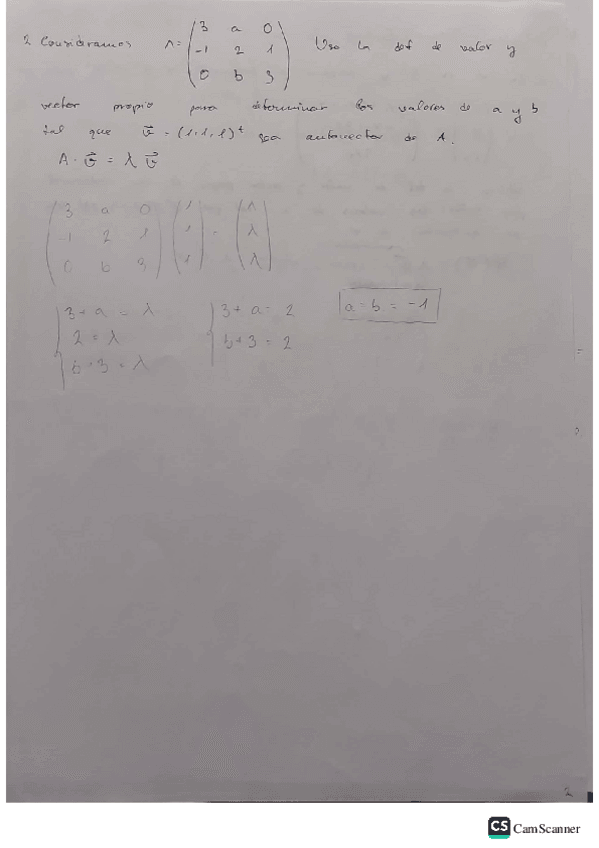 2 Consideramos A = ( 3 a 0 ; -1 2 1 ; 0 b 3 ) Usa la def de valor y
vector propio para determinar los valores de a y b
tal que v⃗ = (1,1,1)ᵗ sea autovector de A.
A · v⃗ = λ v⃗
( 3 a 0 ; -1 2 1 ; 0 b 3 ) ( 1 ; 1 ; 1 ) = ( λ ; λ ; λ )
{ 3 + a = λ { 3 + a = 2 a = b = -1
2 = λ b + 3 = 2
b + 3 = λ
2
CS CamScanner